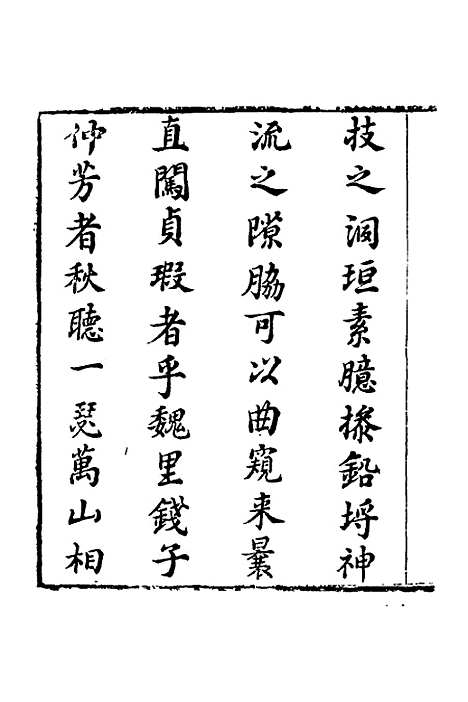 技之洞垣素臆掺鉛埒神
流之隙脇可以曲窺来曩
直闖貞瑕者乎魏里錢子
仲芳者秋聽一瑟萬山相